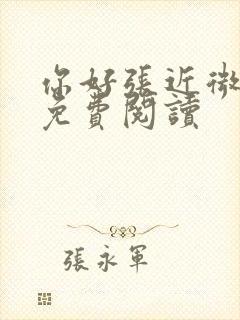 你好張近微
免費閱讀
張永軍